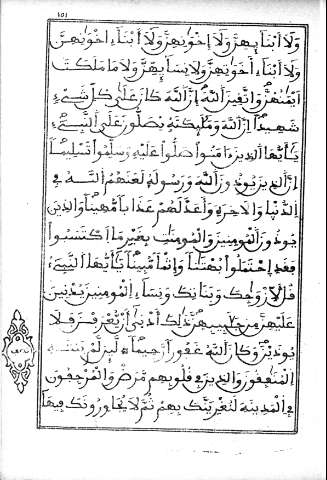 ١٥١
ولا أبنايهن ولا إخونهن ولا أبناء اخونهن
ولا أبناء اخوتهن ولا نسايهن ولا ما ملكت
أيمنهن واتقين الله إن الله كان على كل شےء
شهيدا إن الله وملئكته يصلون على النبےء
يأيها الذين ءامنوا صلوا عليه وسلموا تسليما
إن الذين يوذون الله ورسوله لعنهم الله في
الدنيا والاخرة وأعد لهم عذابا مهينا والذين
يوذون المومنين والمومنت بغير ما اكتسبوا
فقد إحتملوا بهتنا وإثما مبينا يأيها النبےء
قل لازوجك وبناتك ونساء المومنين يدنين
عليهن من جلبيبهن ذلك أدنى أن يعرفن فلا
يوذين وكان الله غفورا رحيما لين لم ينته
المنفقون والذين في قلوبهم مرض والمرجفون
في المدينة لنغرينك بهم ثم لا يجاورونك فيها